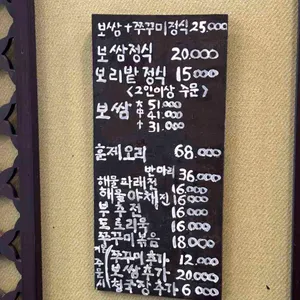 보쌈+쭈꾸미정식 25.000
보쌈정식 20.000
보리밭정식 15000
<2인이상 주문>
보쌈 大 51.000
中 41.000
小 31.000
훈제오리 68.000
반마리 36.000
해물파래전 16.000
해물야채전 16.000
부추전 16.000
도토리묵 16.000
쭈꾸미볶음 18000
쭈꾸미추가 12.000
보쌈추가 20000
청국장추가 6000